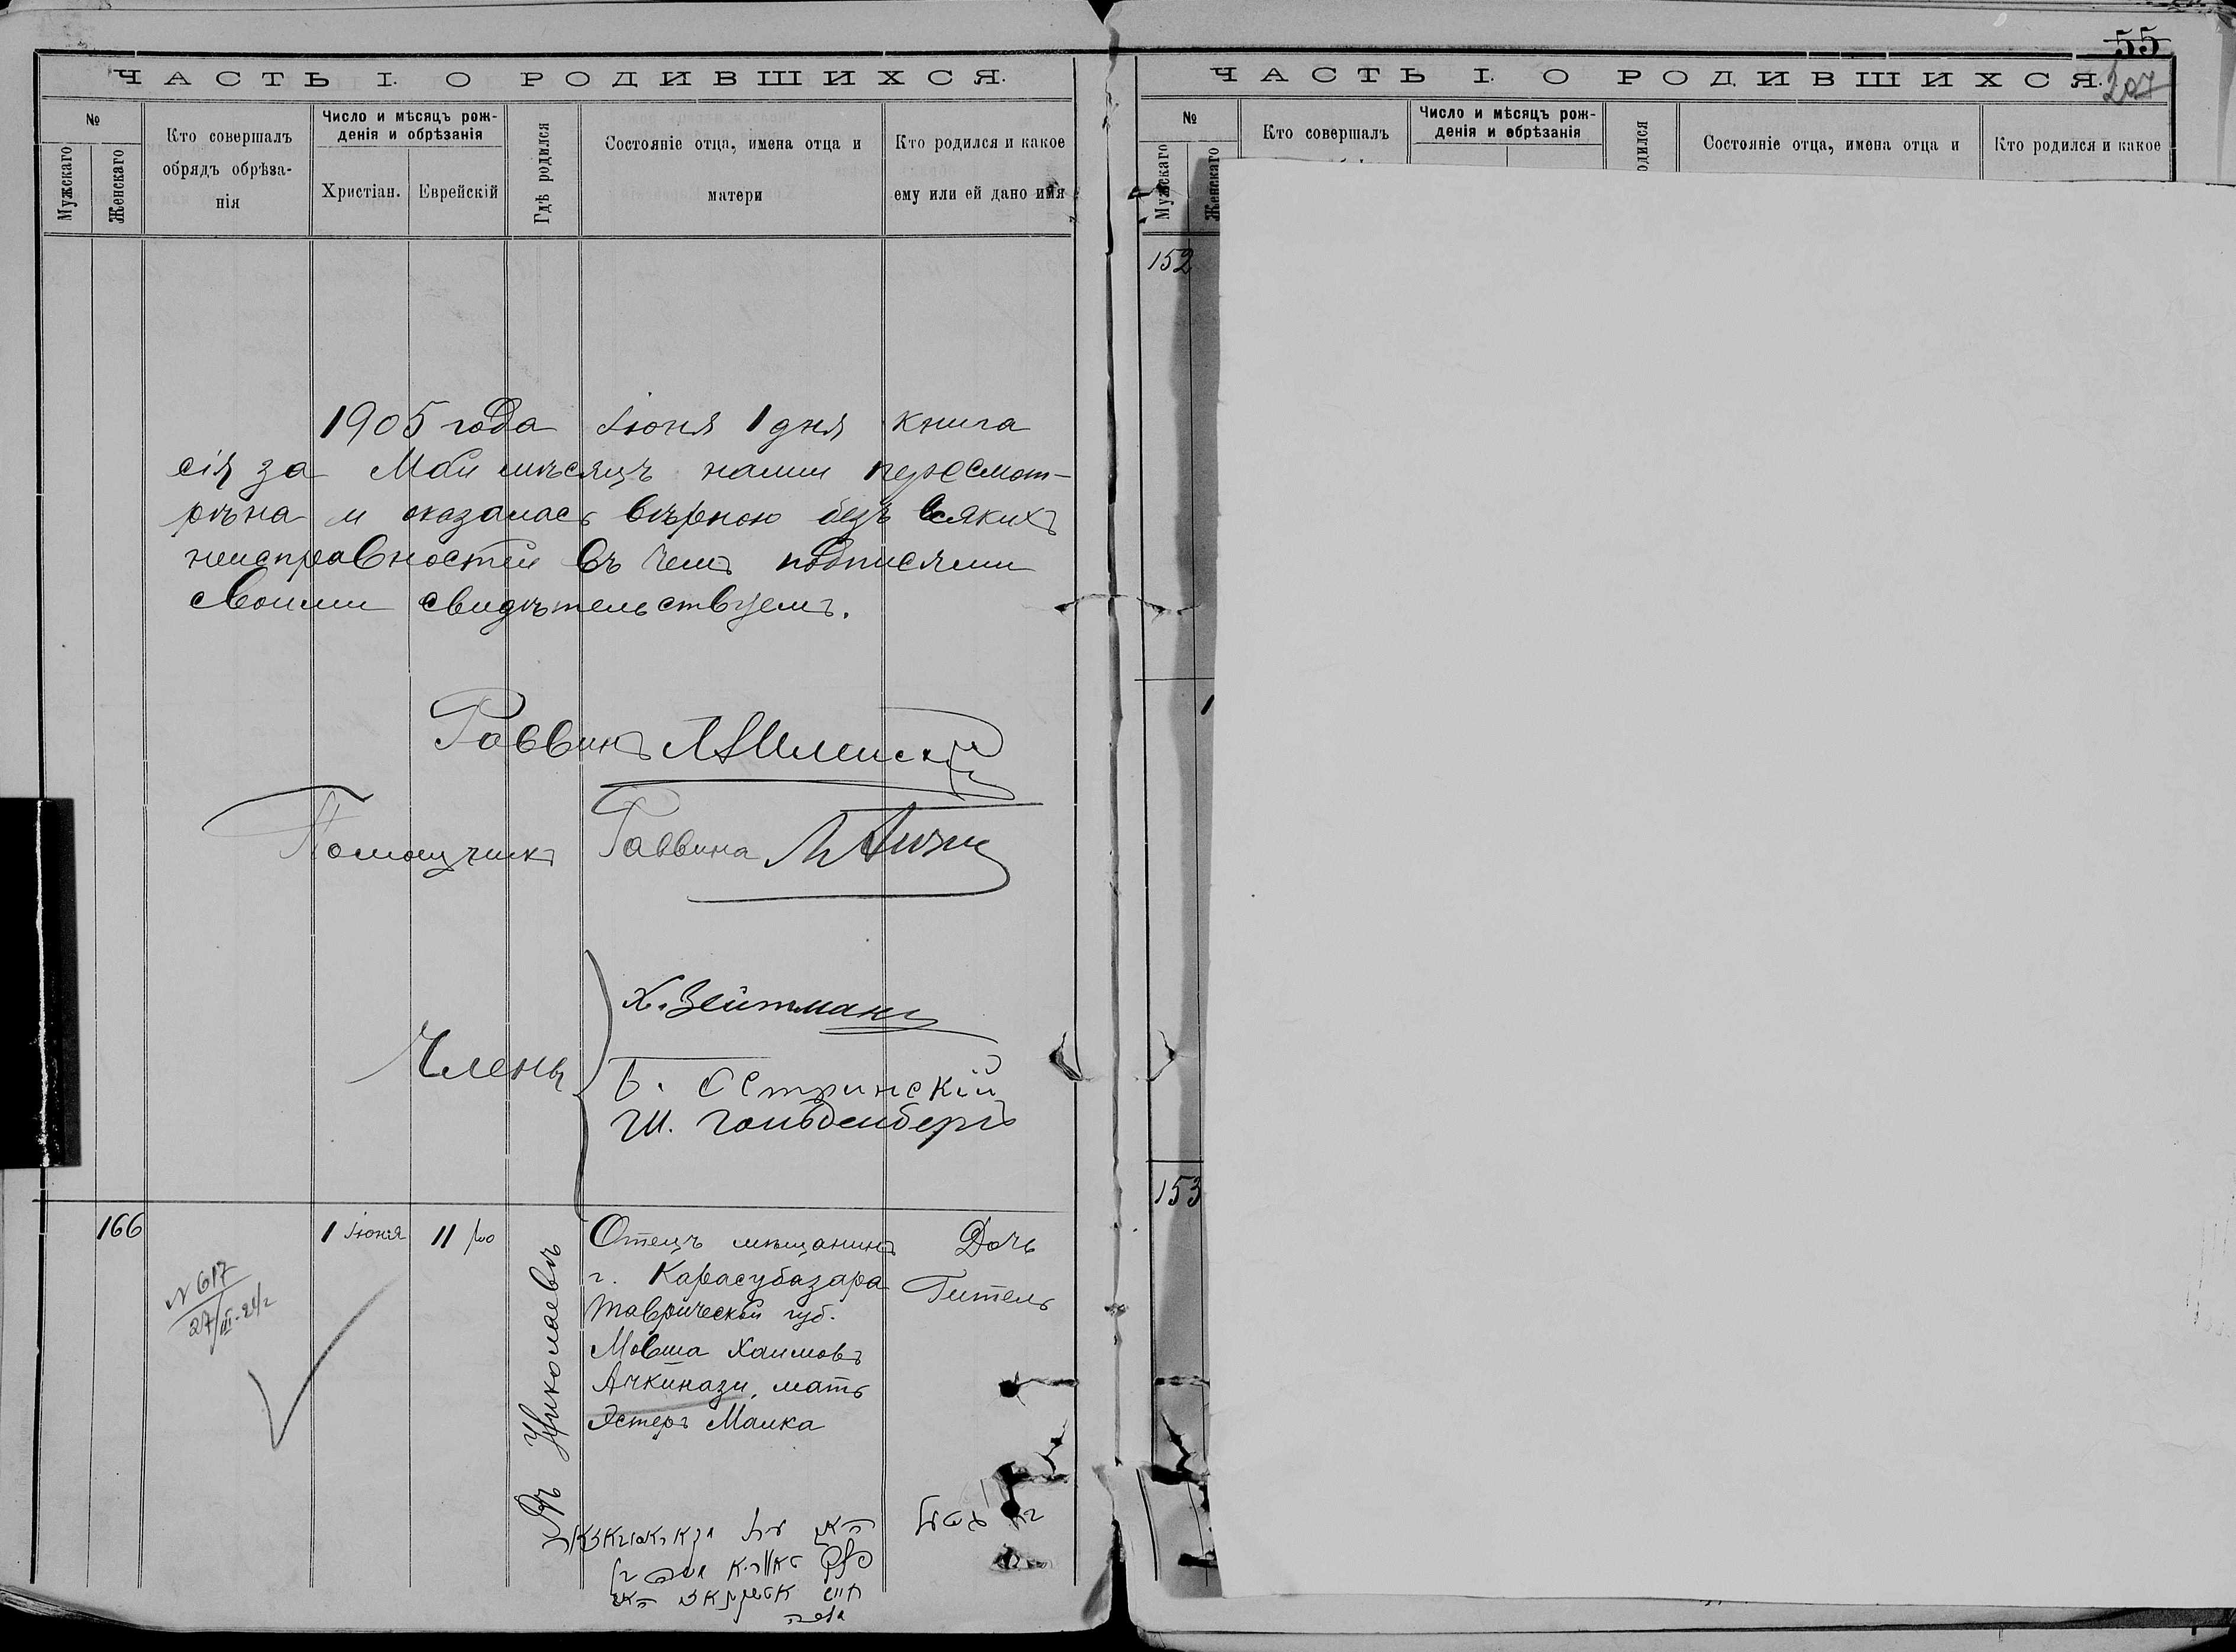 55
207
ЧАСТЬ I. О РОДИВШИХСЯ.
№
Мужскаго
Женскаго
Кто совершалъ
обрядъ обрѣза-
нія
Число и мѣсяцъ рож-
денія и обрѣзанія
Христіан.
Еврейскій
Гдѣ родился
Состояніе отца, имена отца и
матери
Кто родился и какое
ему или ей дано имя
1905 года Іюня 1 дня книга
сія за Май мѣсяцъ нами пересмот-
рѣна и оказалась вѣрною безъ всякихъ
неисправностей въ чемъ подписями
своими свидѣтельствуемъ.
Раввинъ
Помощникъ Раввина
Члены
Х. Зейтманъ
Б. Остринскій
Ш. Гольденбергъ
166
N 617
27/III-24г
1 Іюня
11
Въ Николаевѣ
Отецъ мѣщанинъ
г. Карасубазара
Таврической губ.
Мовша Хаимовъ
Ачкинази, мать
Эстеръ Малка
Дочь
Гитель
ЧАСТЬ I. О РОДИВШИХСЯ.
№
Мужскаго
Женскаго
Кто совершалъ
Число и мѣсяцъ рож-
денія и обрѣзанія
одился
Состояніе отца, имена отца и
Кто родился и какое
152
1
153